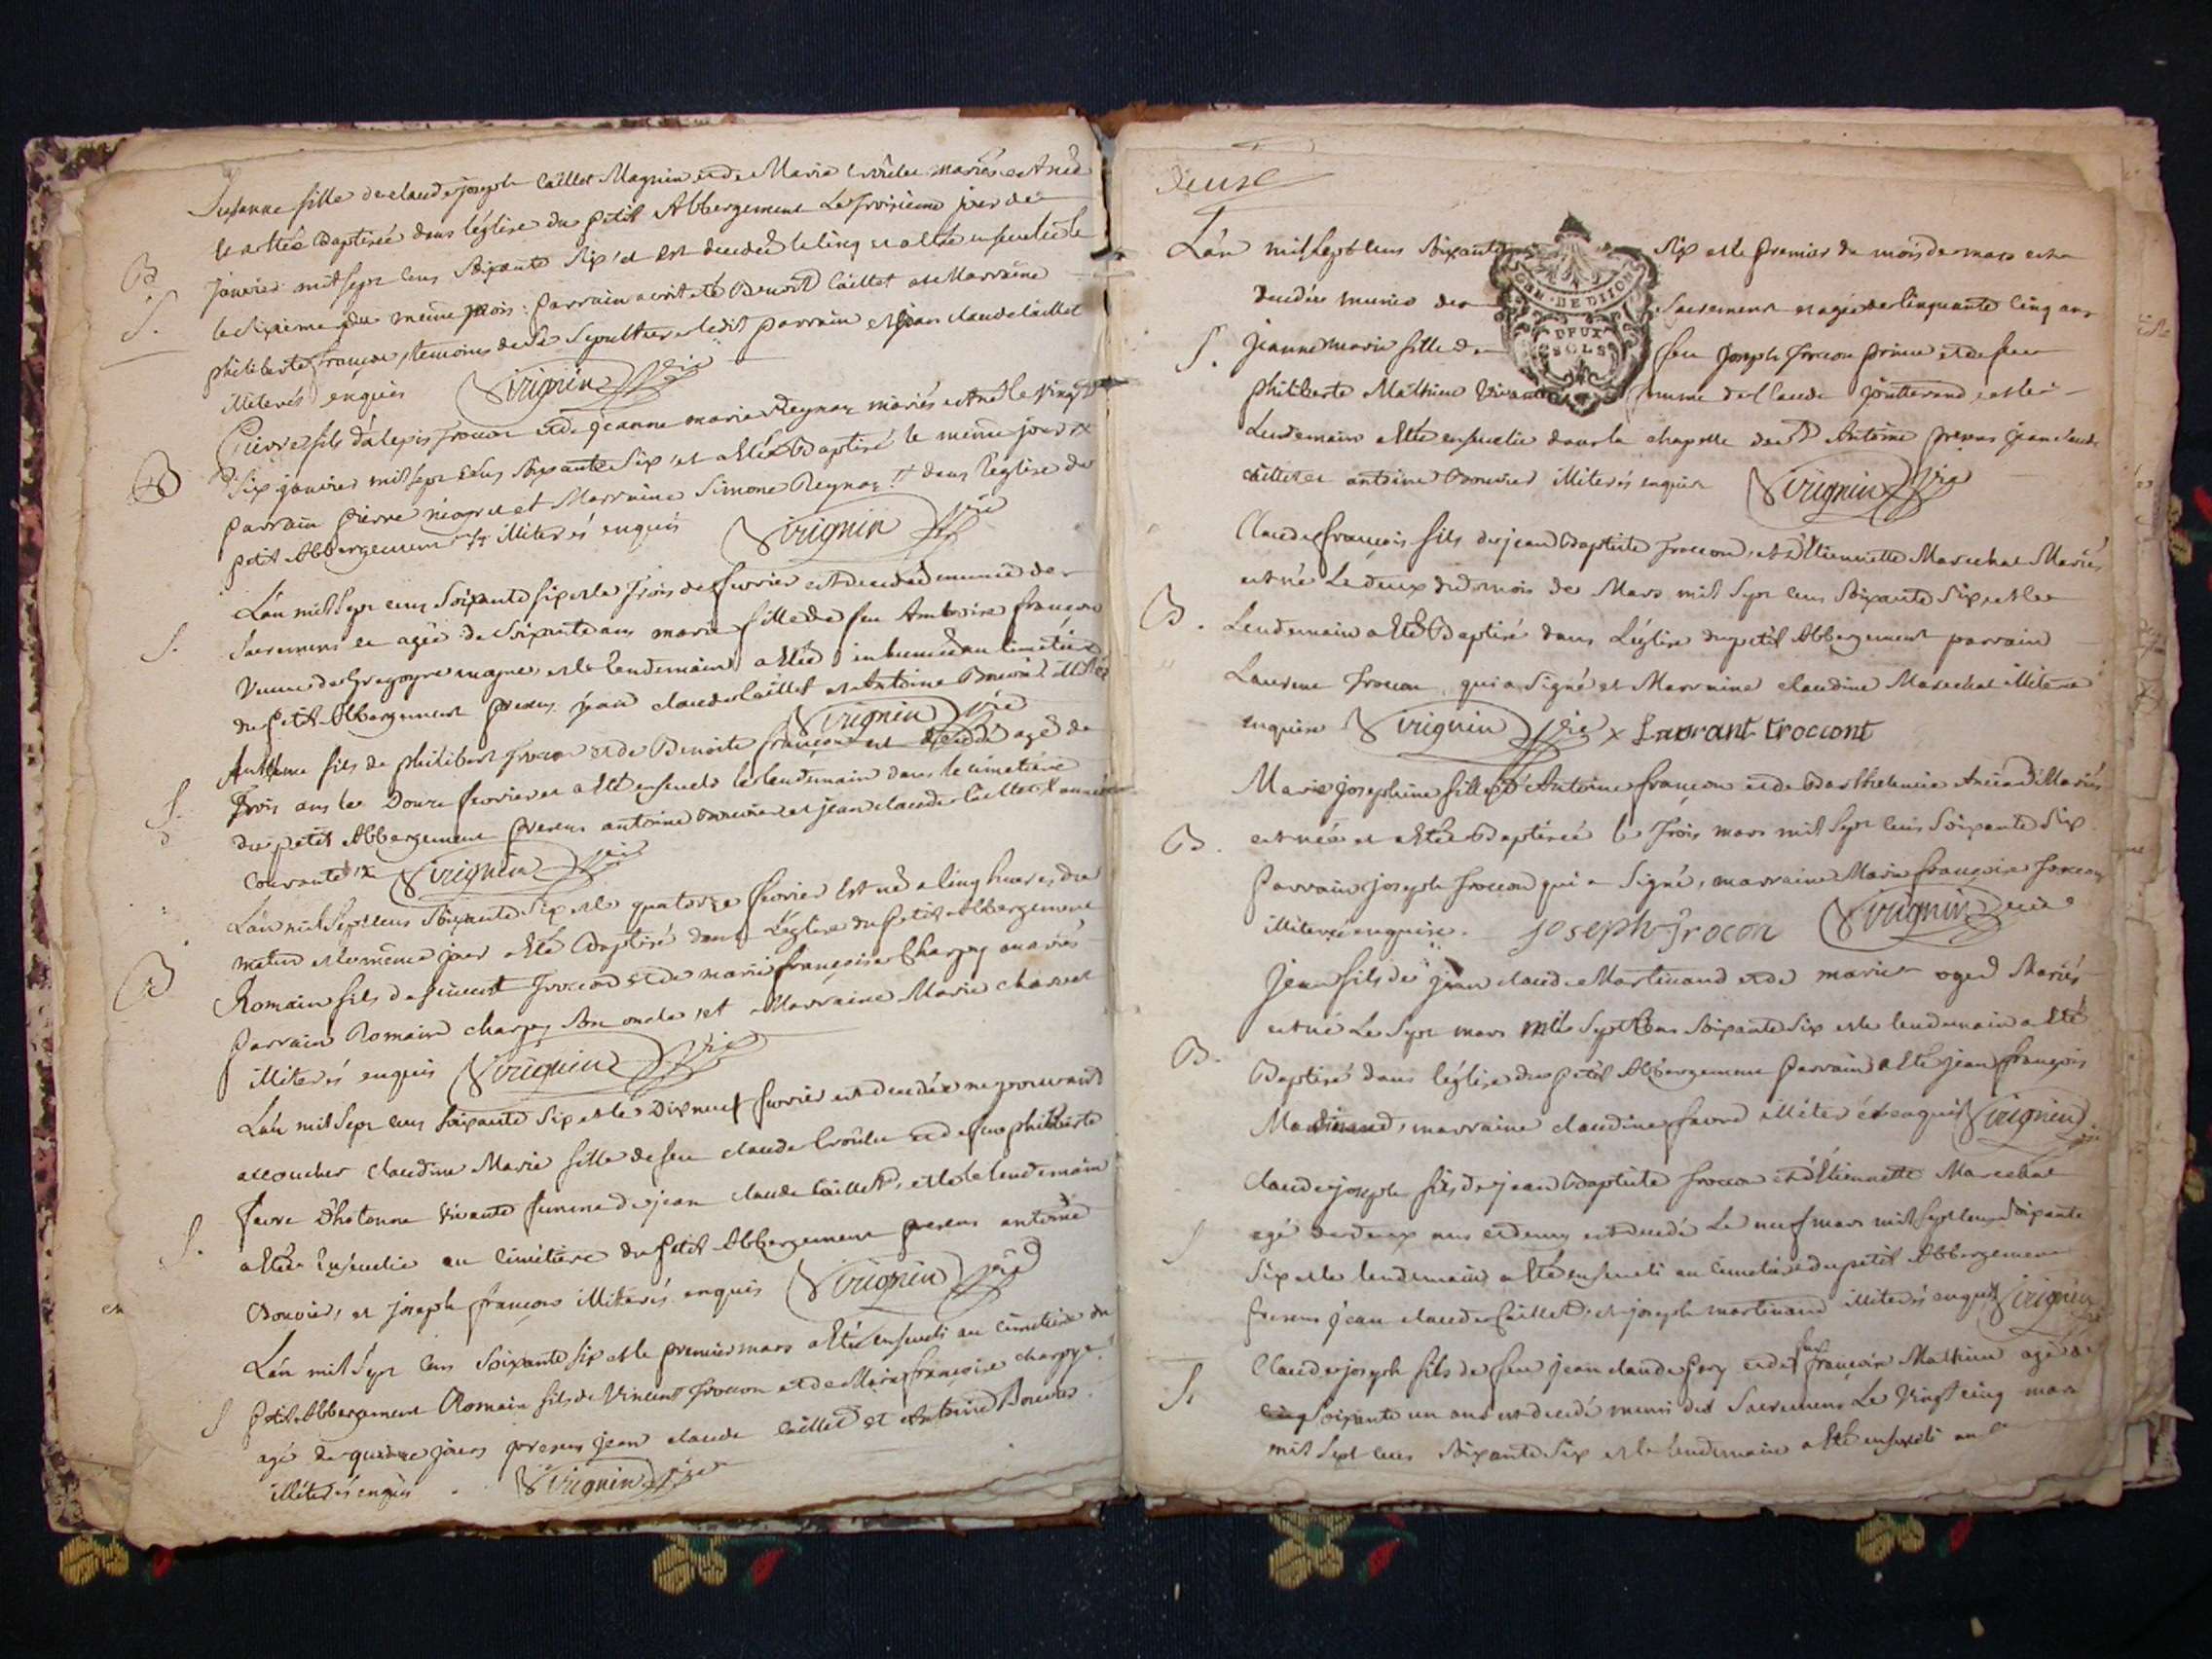 Susanne fille de claude joseph Caillet Magnin et de Marie mariés est née
et a etée Baptisée dans l'église du petit Abbergement Le troisieme jour de
B janvier mil sept cens soixante six et est decedée le cinq et a ete ensevelie le
S. le sixieme du meme mois : parrain a ete Benoit Caillet et Marraine
philiberte françon, temoins de la sepulture ledit parrain et jean claude Caillet
illiterés enquis Virignin vic
Pierre fils d'alexis Trocon et de jeanne marie Reynaz mariés est né le vingt
B six janvier mil sept cens soixante six et a eté Baptisé le meme jour
parrain pierre et Marraine Simone Reynaz dans l'eglise du
petit Abbergement illiterés enquis Virignin vic
L'an mil sept cens soixante six et le trois de fevrier est decedée munie des
S. Sacremens et agée de soixante ans marie fille de feu Ambroise françon
veuve de Gregoyre et le lendemain a eté inhumée au cimetiere
du petit Abbergement presens jean claude Caillet et Antoine Bouvier
Virignin vic
Anthme fils de philibert Trocon et de Benoite françon est decedé agé de
S. Trois ans le douze fevrier et a eté enseveli le lendemain dans le cimetiere
du petit Abbergement presens antoine Bouvier et jean claude Caillet l'année
courante Virignin vic
L'an mil sept cens soixante six et le quatorze fevrier est né a cinq heures du
matin et le même jour a eté Baptisé dans L'église du petit Abbergement
B Romain fils de Vincent Trocon et de marie françoise Charpy mariés
parrain Romain charpy son oncle et Marraine Marie charvet
illiterés enquis Virignin vic
L'an mil sept cens soixante six et le dix neuf fevrier est decedée ne pouvant
accoucher claudine Marie fille de feu claude et de feue philiberte
favre d'hotonne vivante femme de jean claude Caillet, et le lendemain
S. a etée Ensevelie au cimitiere du petit Abbergement presens antoine
Bouvier, et joseph françon illiterés enquis Virignin vic
L'an mil sept cens soixante six et le premier mars a eté enseveli au cimetiere du
S petit Abbergement Romain fils de Vincent Trocon et de Marie françoise charpy
agé de quinze jours presens jean claude Caillet et Antoine Bouvier
illiterés enquis . Virignin vic
deuxe
GEN. DE DIJON
DEUX SOLS
L'an mil sept cens soixante six et le premier du mois de mars est
decedée munie des Sacremens et agée de cinquante cinq ans
S. jeanne marie fille de feu joseph Trocon prince et de feue
philiberte Mathieu vivante femme de Claude joutterand, et le
Lendemain a eté ensevelie dans la chapelle de St Antoine presens jean claude
Caillet et antoine Bouvier illiterés enquis Virignin vic
Claude françois fils de jean Baptiste Trocon, et d'Etiennette Marechal Mariés
est né Le deux du mois de Mars mil sept cens soixante six, et le
B. Lendemain a eté Baptisé dans L'église du petit Abbergement parrain
Laurent Trocon, qui a signé et Marraine claudine Marechal illiterée
enquise Virignin vic x Laurant Troccont
Marie josephine fille d'Antoine françon et de Barthelemie Ancian Mariés
B. est née et a etée Baptisée le trois mars mil sept cens soixante six
parrain joseph Trocon qui a signé, marraine Marie françoise Trocon
illiterée enquise. joseph Trocon Virignin vic
Jean fils de jean claude Martinand et de marie oged Mariés
est né Le sept mars mil sept cens soixante six et le lendemain a eté
B. Baptisé dans l'église du petit Abbergement parrain a eté jean françois
Martinand, marraine claudine favre illiterés enquis Virignin vic
claude joseph fils de jean Baptiste Trocon et d'Etiennette Marechal
S agé de deux ans et demy est decedé Le neuf mars mil sept cens soixante
six et le lendemain a eté enseveli au cimetiere du petit Abbergement
presens jean claude Caillet, et joseph martinand illiterés enquis Virignin
S. Claude joseph fils de feu jean claude et de feue françoise Mathieu agé de
soixante un ans est decedé muni des Sacremens Le vingt cinq mars
mil sept cens soixante six et le lendemain a eté enseveli au